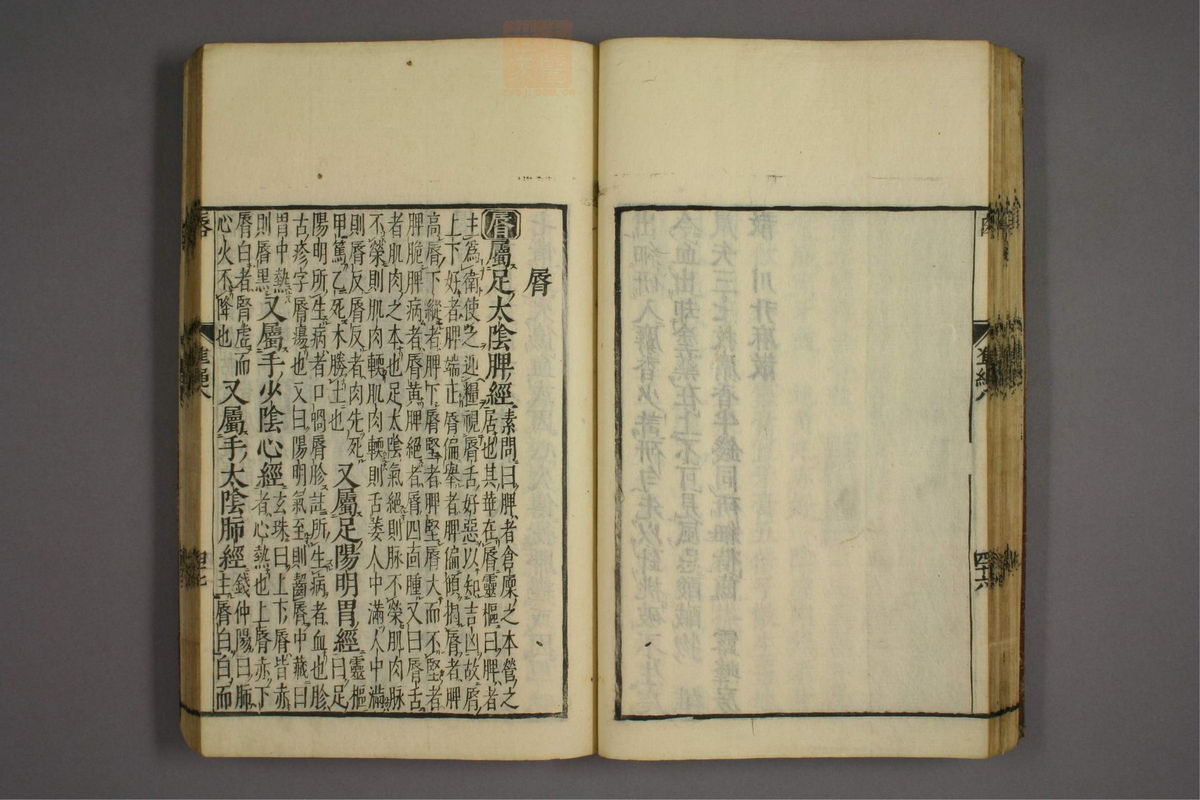 準繩八
四六
脣
脣屬足太陰脾經素問曰脾者倉廩之本營之
居也其華在脣靈樞曰脾者
主爲衛使之迎糧視脣舌好惡以知吉凶故脣
上下好者脾端正脣偏舉者脾偏傾揭脣者脾
高脣下縱者脾下脣堅者脾堅脣大而不堅者
脾脆脾病者脣黃脾絕者脣四面腫又曰脣舌
者肌肉之本也足太陰氣絕則脉不榮肌肉脉
不榮則肌肉輭肌肉輭則舌萎人中滿人中滿
則脣反脣反者肉先死
甲篤乙死木勝土也
又屬足陽明胃經靈樞
曰足
陽明所生病者口喎脣胗註所生病者血也胗
古疹字脣瘍也又曰陽明氣至則齧脣中藏曰
胃中熱
則脣黑
又屬手少陰心經玄珠曰上下脣皆赤
者心熱也上脣赤下
脣白者腎虛而
心火不降也
又屬手太陰肺經錢仲陽曰肺
主脣白白而
脣
準繩八
四七